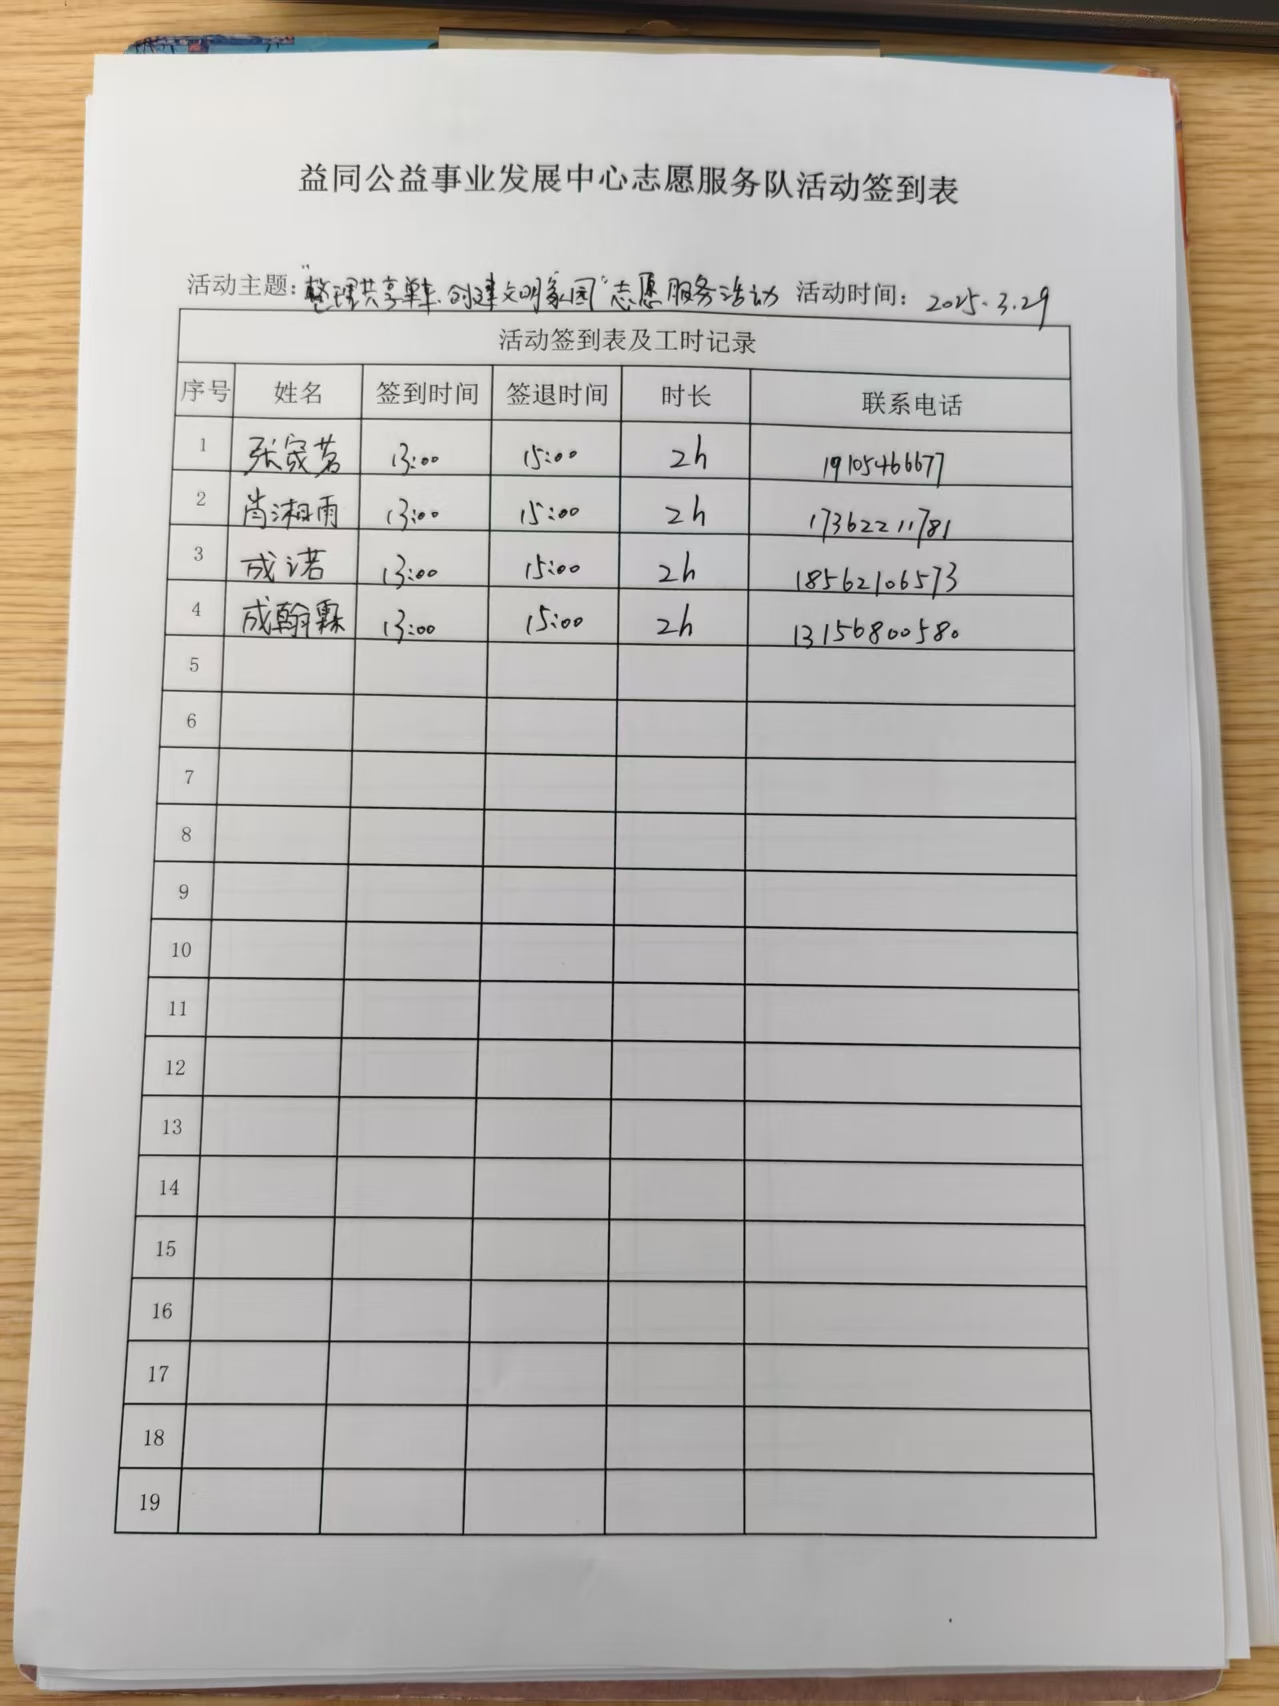 益同公益事业发展中心志愿服务队活动签到表
活动主题："整理共享单车、创建文明家园"志愿服务活动 活动时间：2025.3.29
活动签到表及工时记录
序号 姓名 签到时间 签退时间 时长 联系电话
1 张宬茗 13:00 15:00 2h 19105466677
2 肖湘雨 13:00 15:00 2h 17362211781
3 成诺 13:00 15:00 2h 18562106573
4 成翰霖 13:00 15:00 2h 13156800580
5
6
7
8
9
10
11
12
13
14
15
16
17
18
19